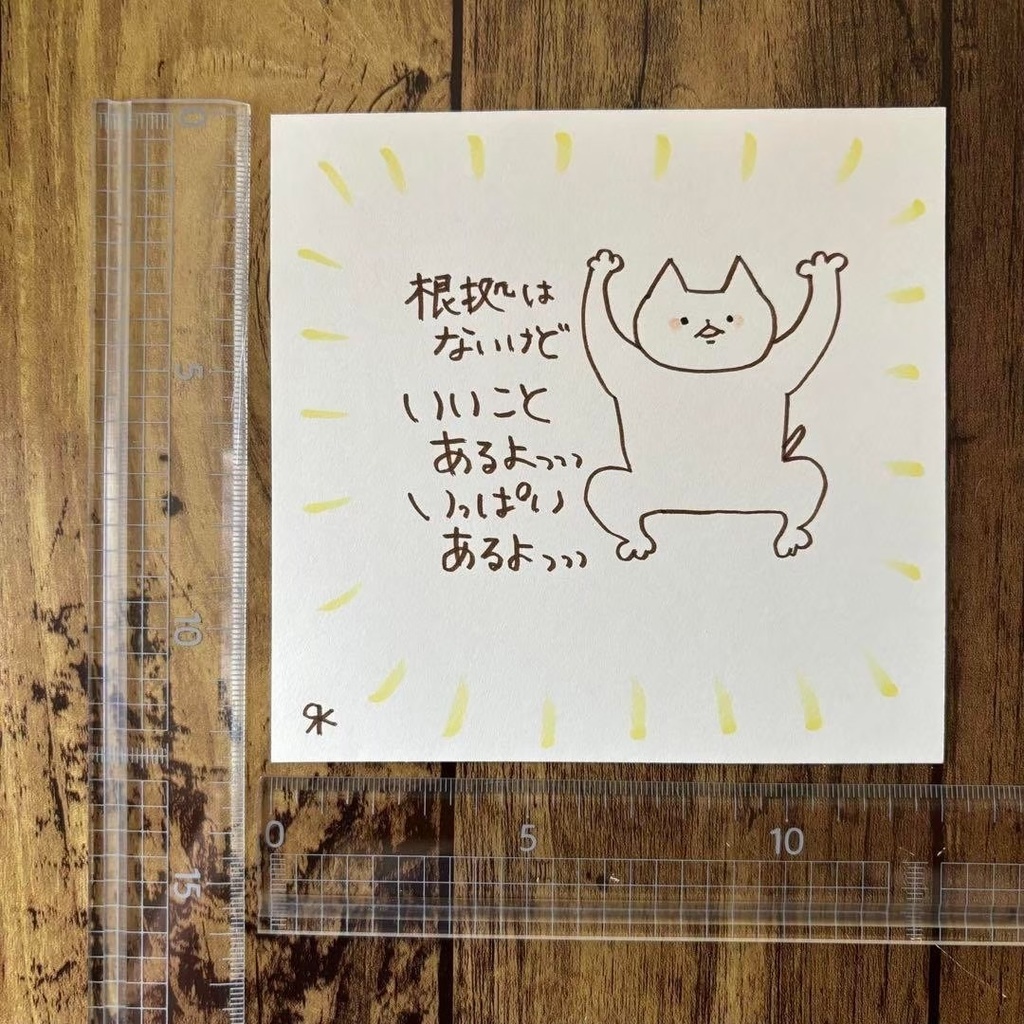 根拠は
ないけど
いいこと
あるよっっっ
いっぱい
あるよっっっ
RK
0
5
10
15
0
5
10